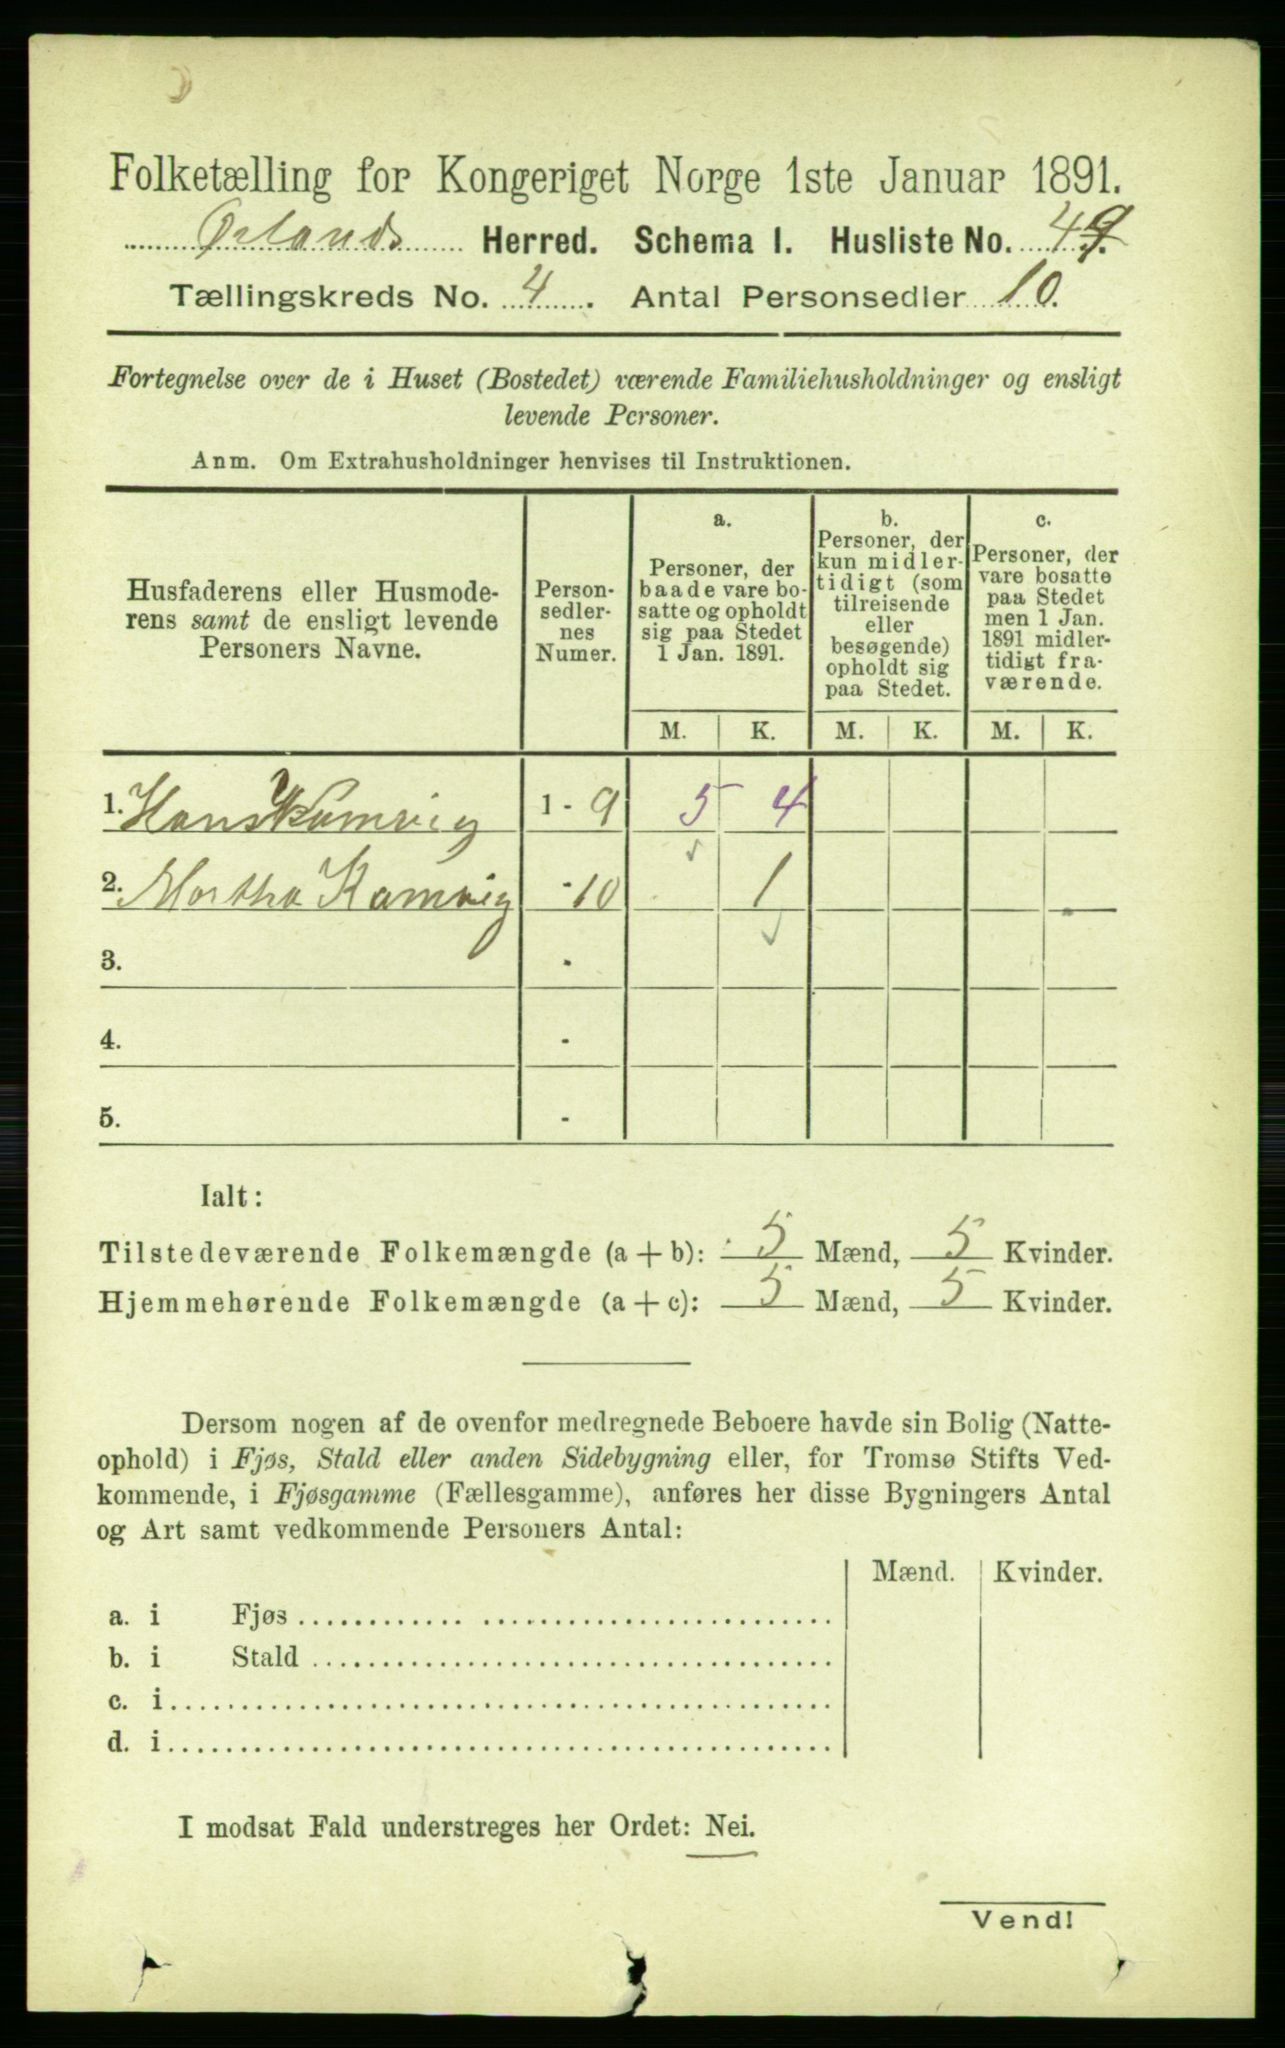 Folketælling for Kongeriget Norge 1ste Januar 1891.
Ørlands Herred. Schema I. Husliste No. 49.
Tællingskreds No. 4. Antal Personsedler 10.
Fortegnelse over de i Huset (Bostedet) værende Familiehusholdninger og ensligt
levende Personer.
Anm. Om Extrahusholdninger henvises til Instruktionen.
Husfaderens eller Husmode-
rens samt de ensligt levende
Personers Navne.
Person-
sedler-
nes
Numer.
a.
Personer, der
baade vare bo-
satte og opholdt
sig paa Stedet
1 Jan. 1891.
b.
Personer, der
kun midler-
tidigt (som
tilreisende
eller
besøgende)
opholdt sig
paa Stedet.
c.
Personer, der
vare bosatte
paa Stedet
men 1 Jan.
1891 midler-
tidigt fra-
værende.
M. K. M. K. M. K.
1. Hans Kamvig 1 - 9 5 4
2. Martha Kamvig - 10 1
3. -
4. -
5. -
Ialt:
Tilstedeværende Folkemængde (a + b): 5 Mænd, 5 Kvinder.
Hjemmehørende Folkemængde (a + c): 5 Mænd, 5 Kvinder.
Dersom nogen af de ovenfor medregnede Beboere havde sin Bolig (Natte-
ophold) i Fjøs, Stald eller anden Sidebygning eller, for Tromsø Stifts Ved-
kommende, i Fjøsgamme (Fællesgamme), anføres her disse Bygningers Antal
og Art samt vedkommende Personers Antal:
Mænd. Kvinder.
a. i Fjøs
b. i Stald
c. i
d. i
I modsat Fald understreges her Ordet: Nei.
Vend!